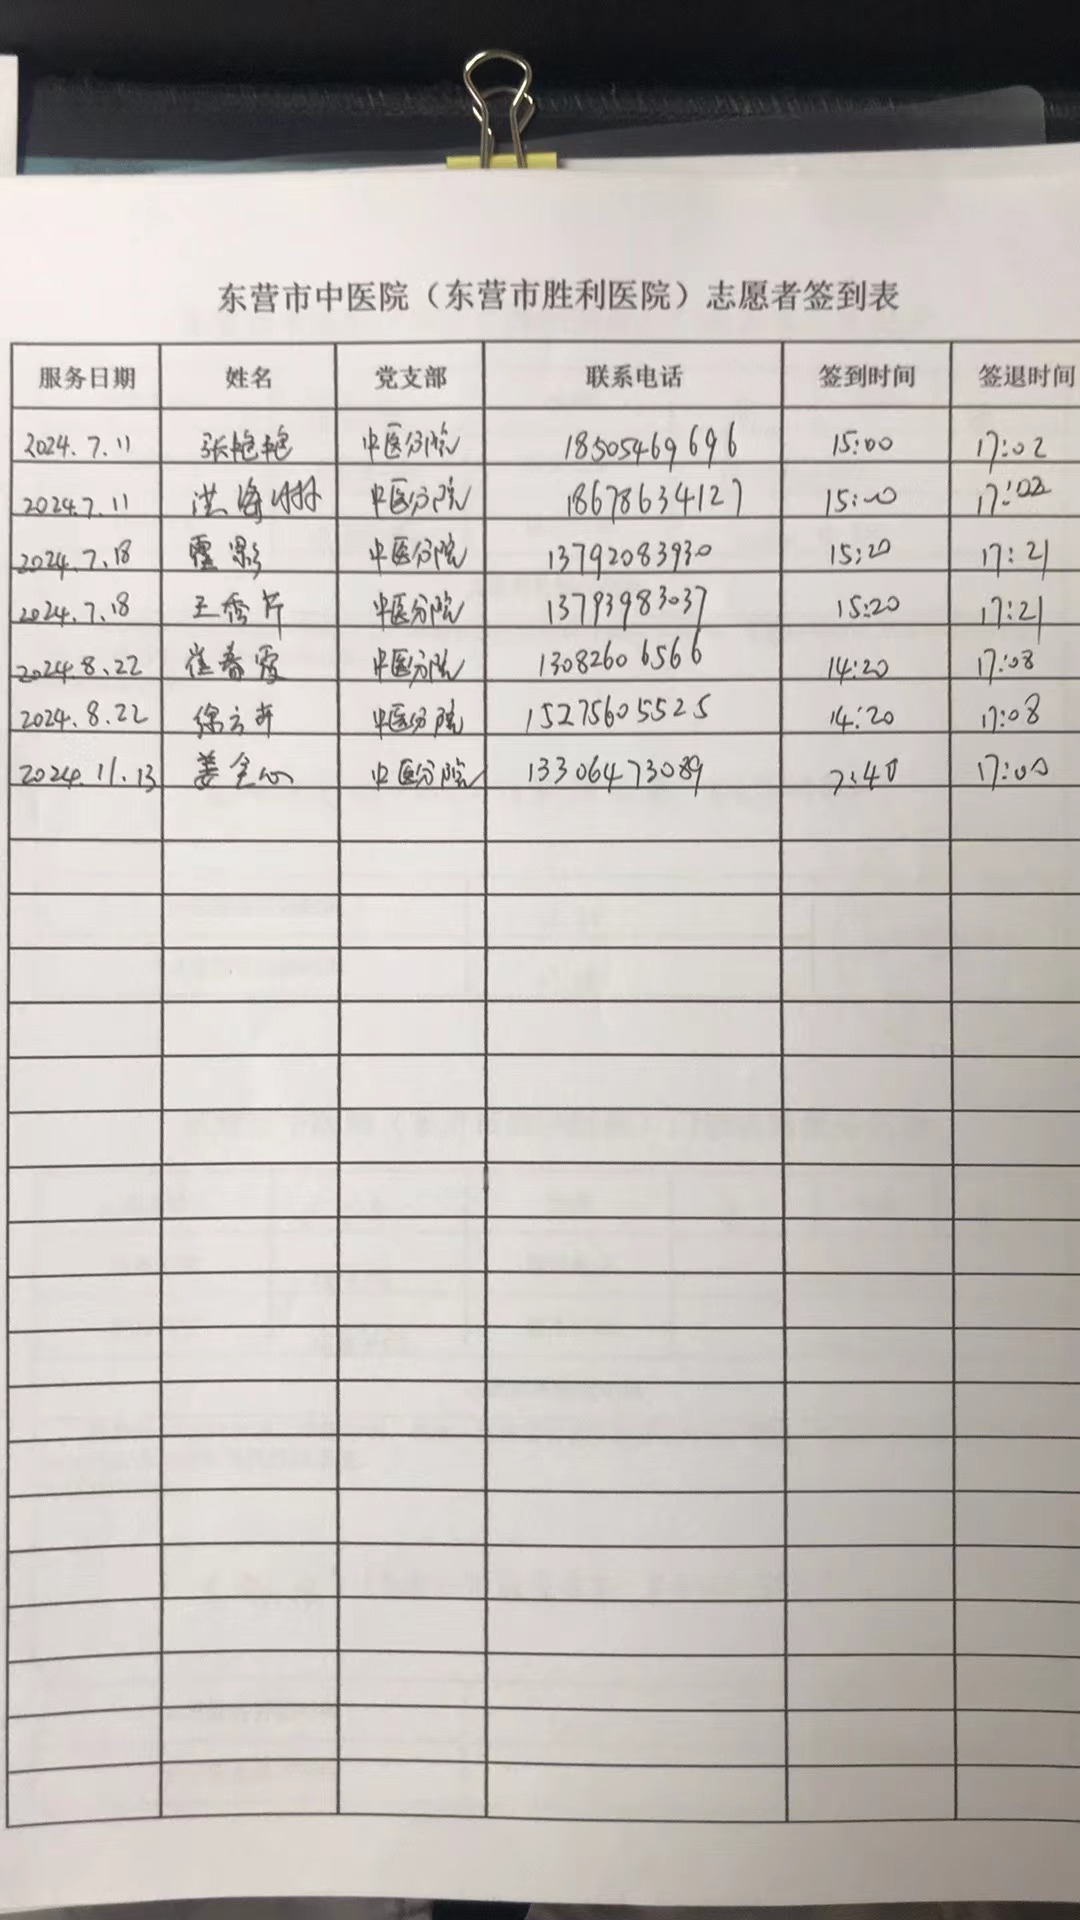 东营市中医院（东营市胜利医院）志愿者签到表
服务日期 姓名 党支部 联系电话 签到时间 签退时间
2024.7.11 张艳艳 中医分院 18505469696 15:00 17:02
2024.7.11 洪海林 中医分院 18678634127 15:00 17:02
2024.7.18 霍影 中医分院 13792083930 15:20 17:21
2024.7.18 王秀芹 中医分院 13793983037 15:20 17:21
2024.8.22 崔春霞 中医分院 13082606566 14:20 17:08
2024.8.22 徐云 中医分院 15275605525 14:20 17:08
2024.11.13 姜全心 中医分院 13306473089 7:40 17:00